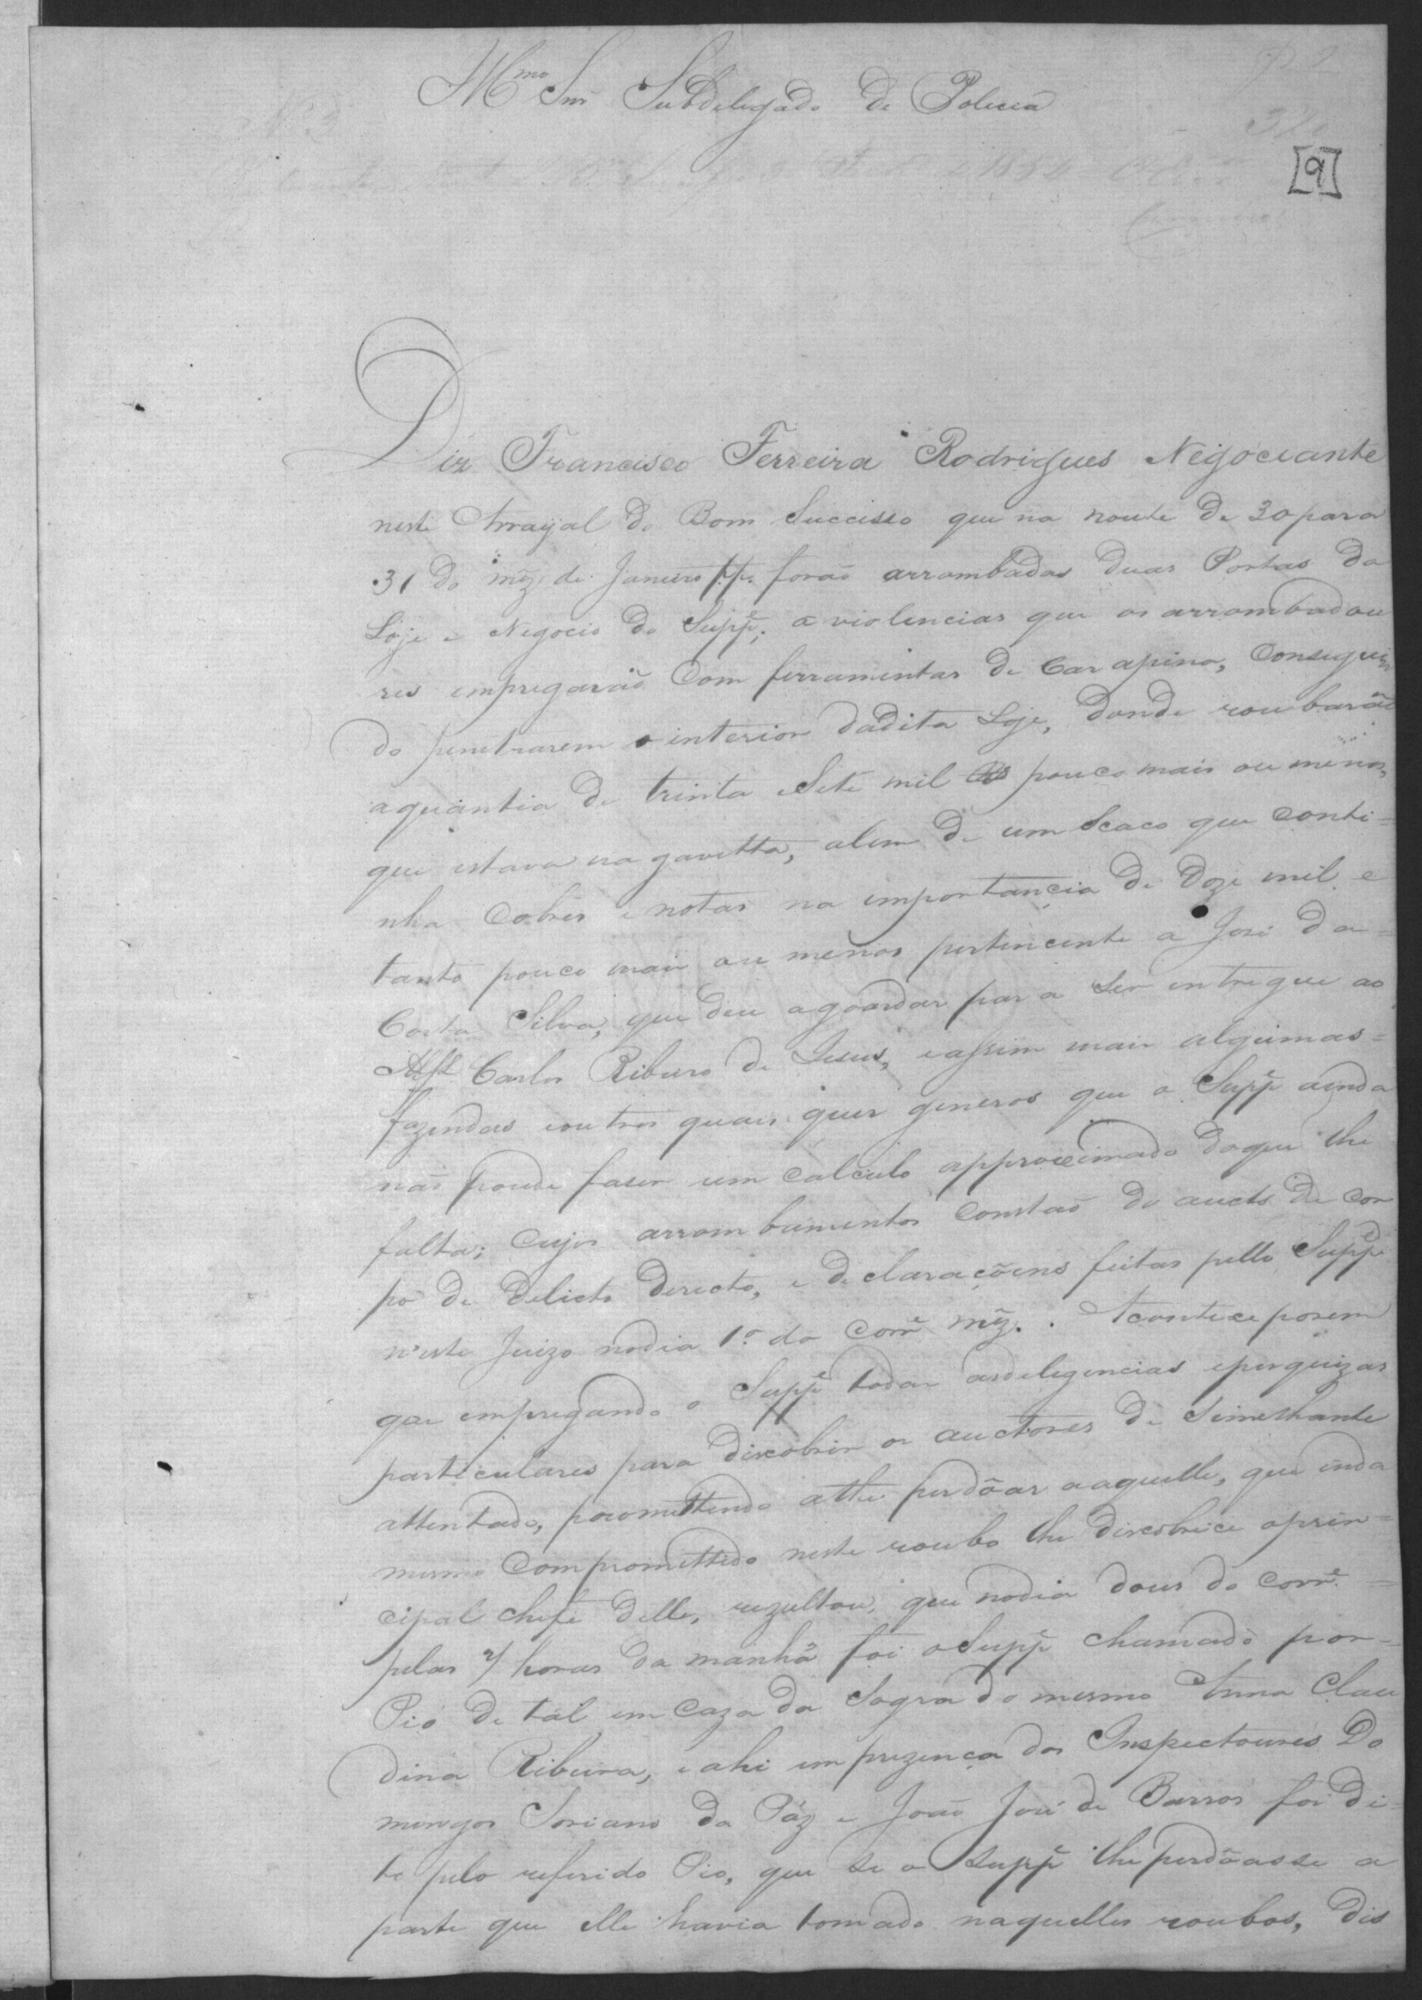 Illmo Snr Subdelegado de Policia
[9]
Diz Francisco Ferreira Rodrigues Negociante
neste Arrayal do Bom Successo que na noute de 30 para
31 do mez de Janeiro pp. forão arrombadas duas Portas da
Loje e Negocio do Suppe, a violencias que os arrombadou
res empregarão Com ferramentas de Carapina, Conseguin
do penetrarem o interior dadita Loje, donde roubarão
aquantia de trinta eSete mil Rs pouco mais ou menos,
que estava na gavetta, alem de um Scaco que conti=
nha Cobres e notas na importancia de Doze mil e
tanto pouco mais ou menos pertencente a José da=
Costa Silva, que deu agoardar para ser entregue ao
Alfs Carlos Ribeiro de Jesus, eassim mais algumas=
fazendas eoutros quais quer generos que o Suppe ainda
não poude faser um calculo approximado doque lhe
falta; Cujos arrombamentos constão do aucto de Cor
po de Delicto Directo, e declaraçõens feitas pello Suppe
n'este Juizo nodia 1º do Corre mez. Acontece porem
que empregando o Suppe todas asdeligencias epesquizas
particulares para discobrir os auctores de Simelhante
attentado, promettendo athe perdõar aaquelle, que inda
mesmo Compromettido neste roubo lhe discobrice oprin=
cipal chefe delle, rezultou, que nodia dous do Corre=
pelas 7 horas da manhã foi oSuppe chamado por=
Pio de tal em Caza da Sogra do mesmo Anna Clau
dina Ribeira, e ahi em prezença dos Inspectoures Do
mingos Soriano da Páz e João José de Barros foi di
to pelo referido Pio, que se o Suppe lhe perdõasse a
parte que elle havia tomado naquelles roubos, dis